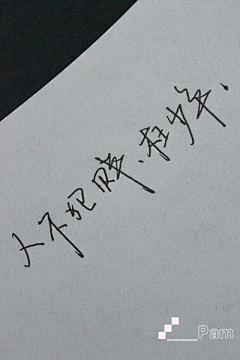 人不犯贱.枉少年.
____Pam